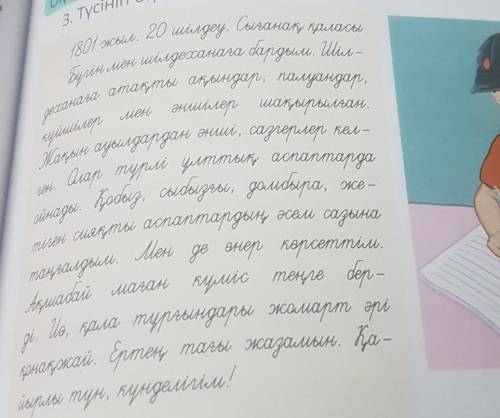 3. Түсініп
1801 жыл. 20 шілдеу. Сығанақ қаласы
Бүгін мен шілдеханаға бардым. Шіл-
деханаға атақты ақындар, палуандар,
күйшілер мен әншілер шақырылған.
Жақын ауылдардан әнші, сазгерлер кел-
ген. Олар түрлі ұлттық аспаптарда
ойнады. Қобыз, сыбызғы, домбыра, же-
тіген сияқты аспаптардың әсем сазына
таңғалдым. Мен де өнер көрсеттім.
Ақшабай маған күміс теңге бер-
ді. Иә, қала тұрғындары жомарт әрі
қонақжай. Ертең тағы жазамын. Қа-
йырлы түн, күнделігім!